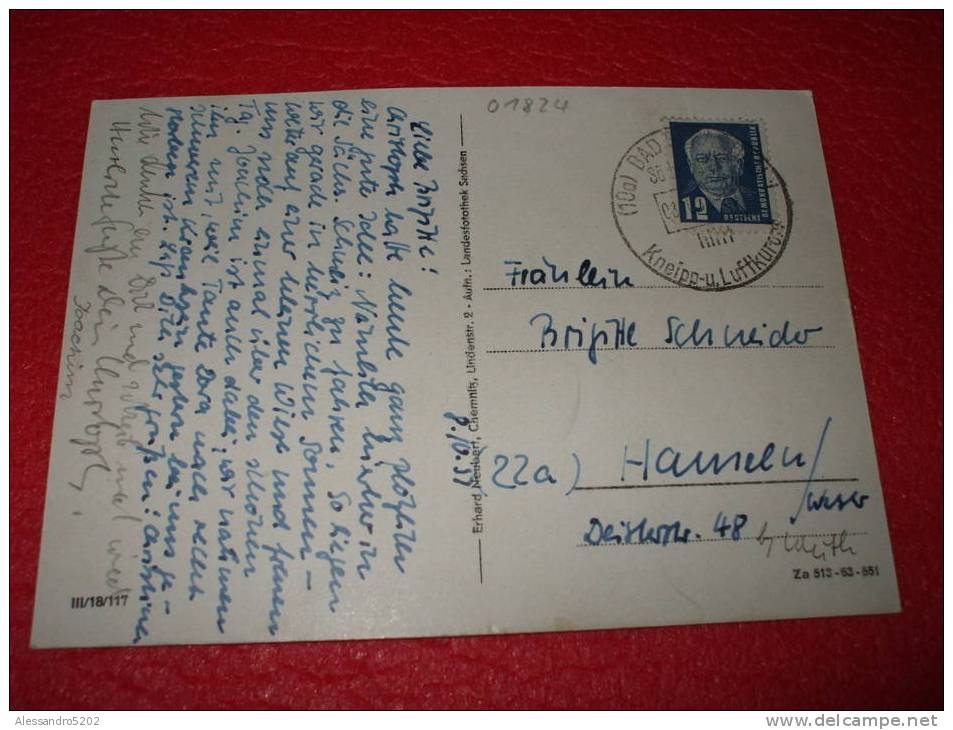 01824
Liebe Brigitte!
Christoph hatte heute ganz plötzlich
eine gute Idee: Nämlich hinaus in
die Sächs. Schweiz zu fahren. So liegen
wir gerade in herrlichem Sonnen-
wetter auf einer kleinen Wiese und freuen
uns wieder einmal über den schönen
Tag. Joachim ist auch dabei; wir nahmen
ihn mit, weil Tante Dora nach
schwerem Kranksein gestorben
ist. Laß Dich sehr grüßen! Christine
Wir denken an Dich und
Unsere Grüße Dein Christoph,
Joachim
9.10.51
Erhard Neubert, Chemnitz, Lindenstr. 2 - Aufn.: Landesfotothek Sachsen
III/18/117
(10a) BAD
Kneipp-u. Luftkurort
12
DEUTSCHE DEMOKRATISCHE REPUBLIK
Fräulein
Brigitte Schneider
(22a) Hameln/
Weser
Deisterstr. 48
b/
Za 513-53-551
Alessandro5202
www.delcampe.net